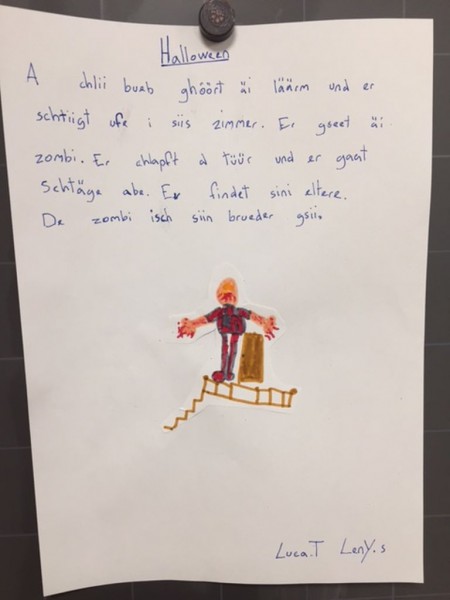 Halloween
A chlii bueb ghöört äi läärm und er
schtiigt ufe i siis zimmer. Er gseet äi
zombi. Er chlapft d tüür und er gaat
Schtäge abe. Er findet sini eltere.
De zombi isch siin brueder gsii.
Luca.T LenY.s